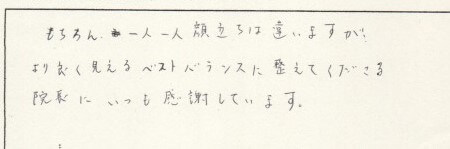 もちろん、一人一人顔立ちは違いますが、
より良く見えるベストバランスに整えてくださる
院長にいつも感謝しています。